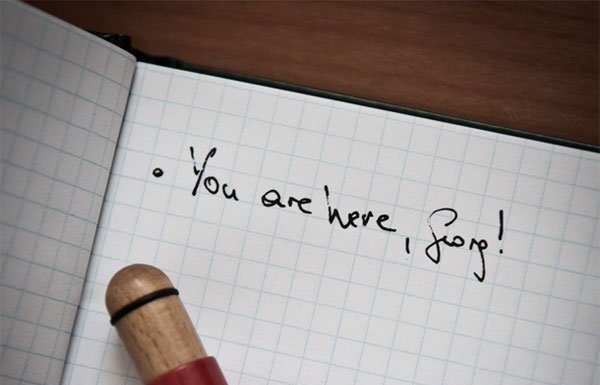 • You are here, Georg!